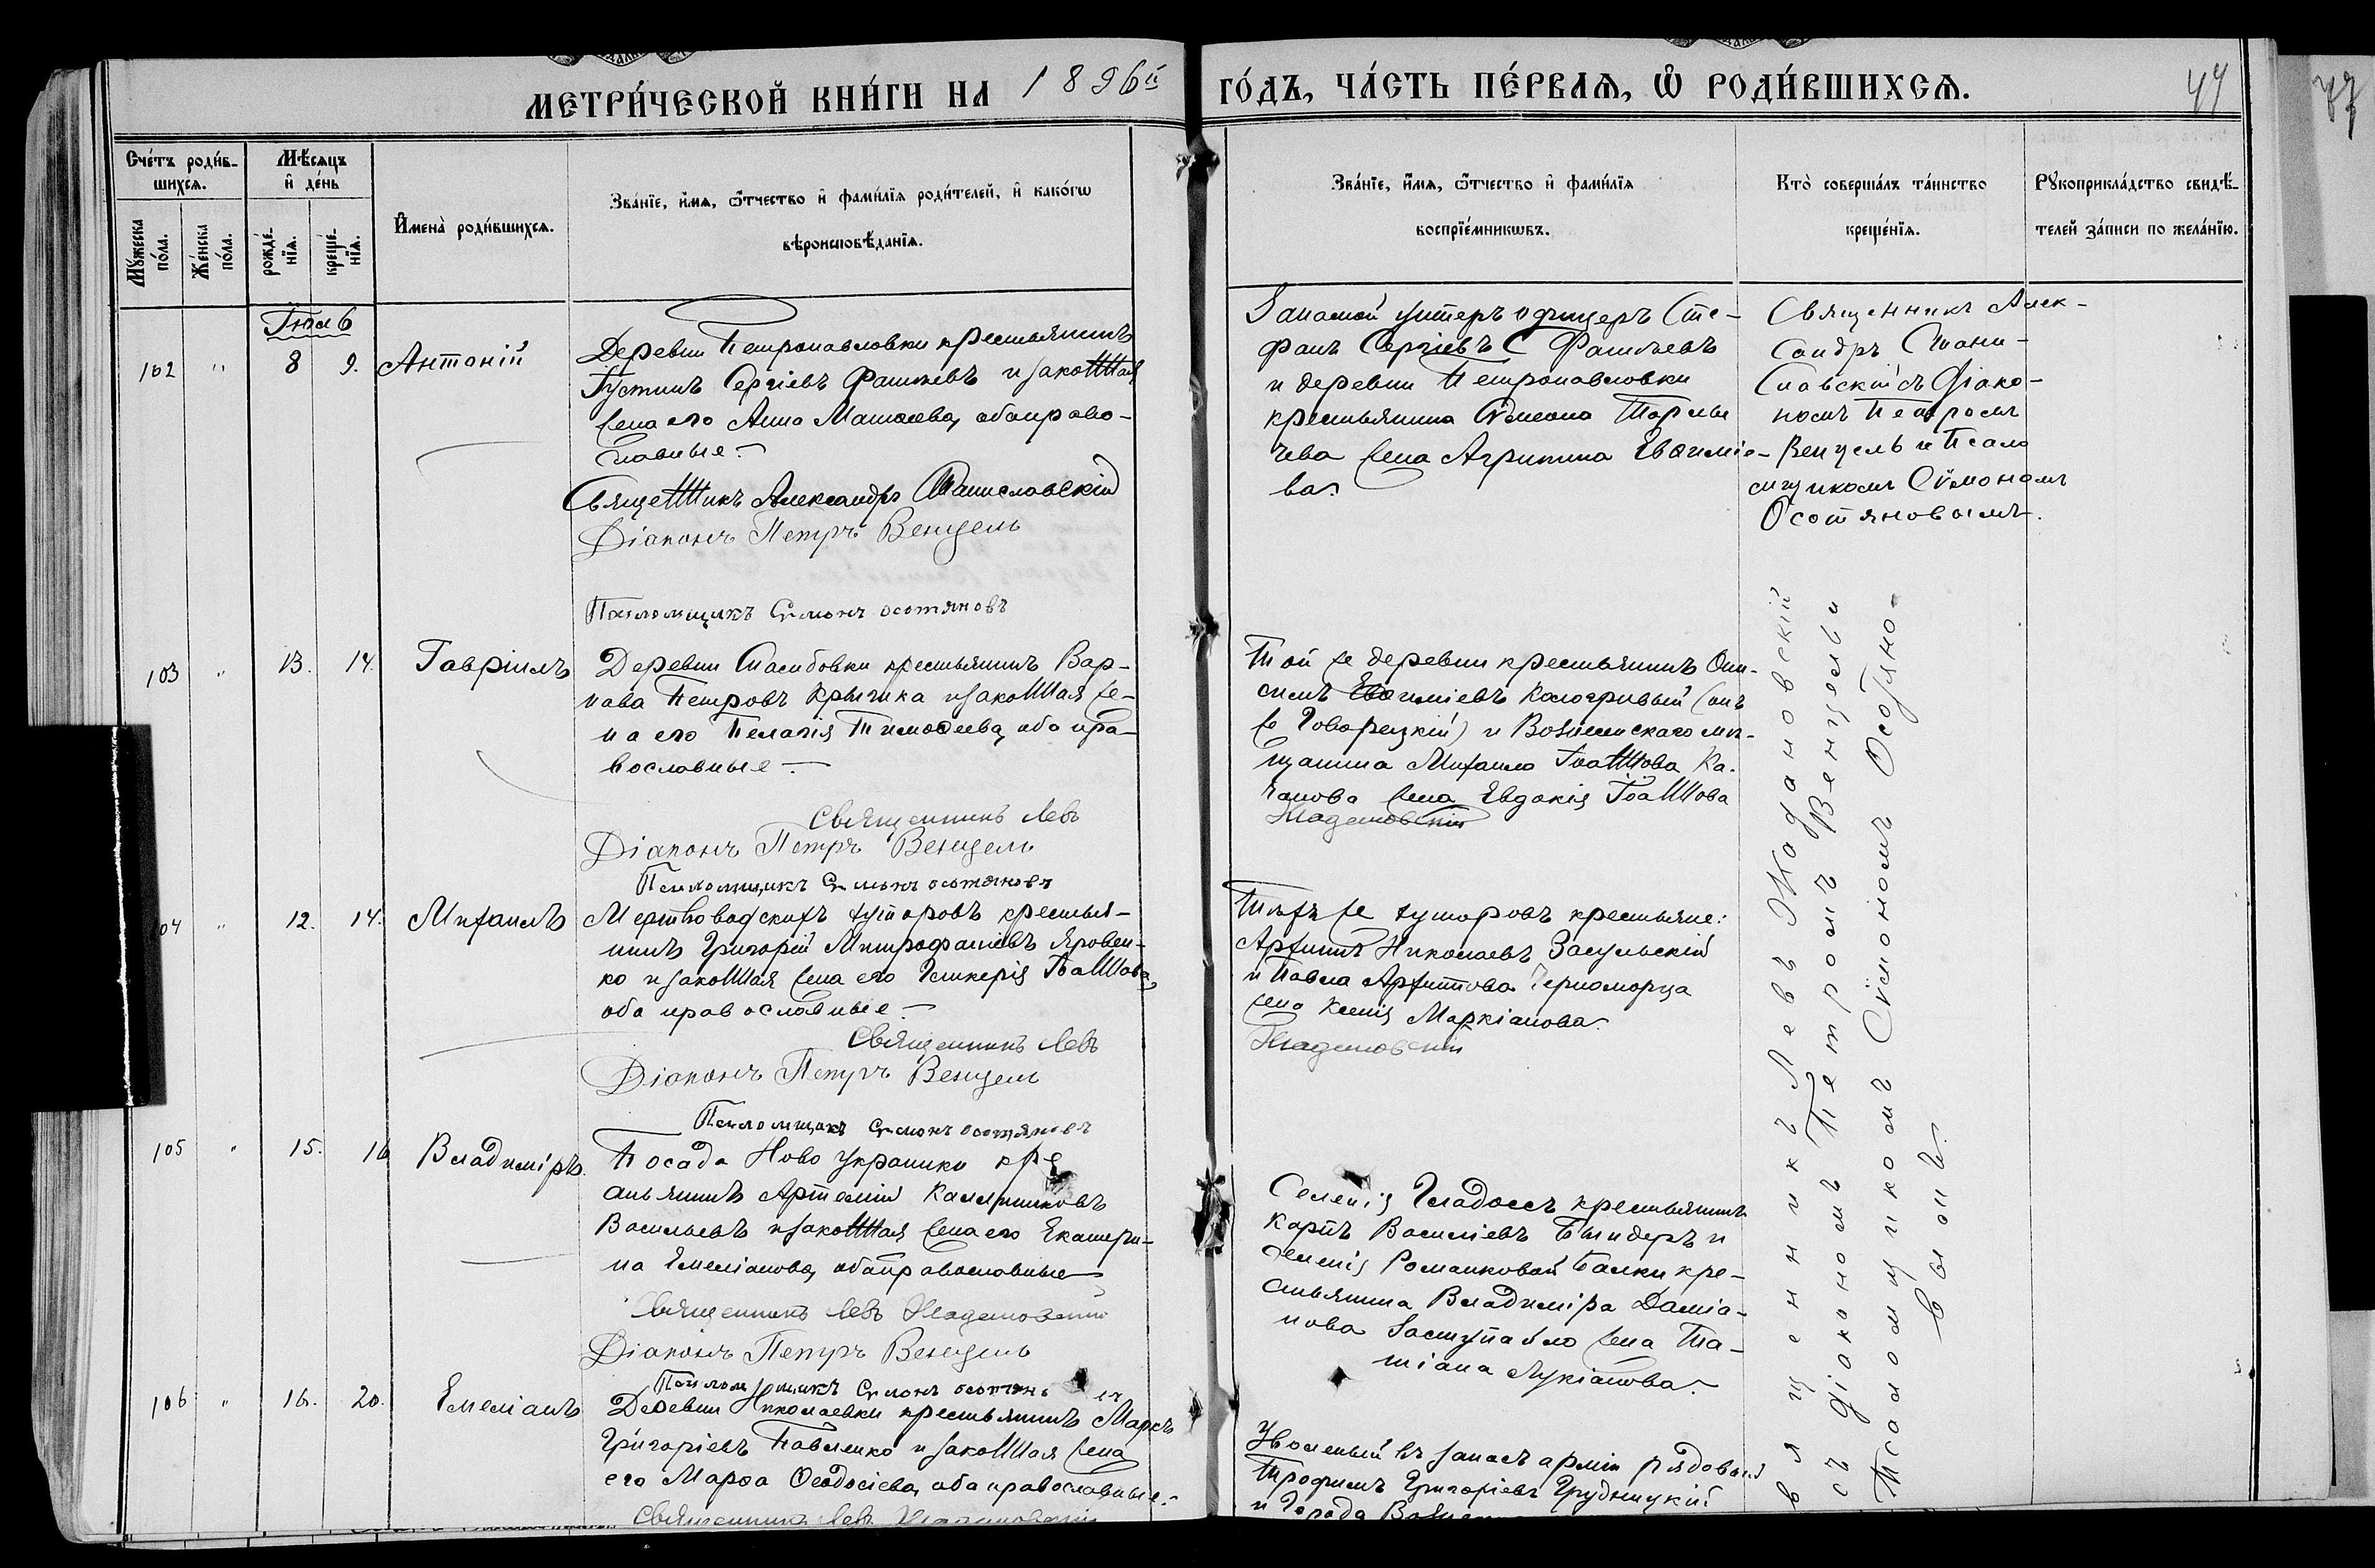 МЕТРИ́ЧЕСКОЙ КНИ́ГИ НА 1896й ГО́ДЪ, ЧА́СТЬ ПЕ́РВАѦ, Ѡ РОДИ́ВШИХСѦ.
44
Сче́тъ роди́в-
шихсѧ.
Мѣ́сѧцъ
и де́нь
Мꙋжеска по́ла.
Же́нска по́ла.
рожде́-
нїѧ.
креще́-
нїѧ.
Имена̀ роди́вшихсѧ.
Зва́нїе, и́мѧ, ѻ́тчество и фами́лїѧ роди́телей, и како́гѡ
вѣроисповѣ́данїѧ.
Зва́нїе, и́мѧ, ѻ́тчество и фами́лїѧ
воспрїе́мникѡвъ.
Кто̀ соверша́лъ та́инство
креще́нїѧ.
Рꙋкоприкла́дство свидѣ́-
телей за́писи по жела́нїю.
Іюль
102 " 8 9. Антоній
Деревни Петропавловки крестьянинъ
Іустинъ Сергіевъ и законная
жена его Анна Матѳеева, оба право-
славные.
Священникъ Александръ Станиславскій
Діаконъ Петръ Венцель
Псаломщикъ Сѵмонъ Осотяновъ
Запасной унтеръ офицеръ Сте-
фанъ Сергіевъ
и деревни Петропавловки
крестьянина Сѵмеона
жена Агрипина Евѳиміе-
ва.
Священникъ Алек-
сандръ Стани-
славскій съ Діако-
номъ Петромъ
Венцель и Псало
мщикомъ Сѵмономъ
Осотяновымъ.
103 " 13. 14. Гавріилъ
Деревни крестьянинъ Вар-
нава Петровъ и законная же-
на его Пелагія Тимоѳеева, оба пра-
вославные.
Священникъ Левъ
Діаконъ Петръ Венцель
Псаломщикъ Сѵмонъ Осотяновъ
Той же деревни крестьянинъ Они-
симъ Евѳиміевъ Кологривый (онъ
же Говорецкій) и Вознесенскаго мѣ-
щанина Михаила Іоаннова Ка-
жена Евдокія Іоаннова
Жадановскій
104 " 12. 14. Михаилъ
Мертвоводскихъ хуторовъ крестья-
нинъ Григорій Митрофаніевъ Яровен-
ко и законная жена его Гликерія Іоаннова,
оба православные.
Священникъ Левъ
Діаконъ Петръ Венцель
Псаломщикъ Сѵмонъ Осотяновъ
Тѣхъ же хуторовъ крестьяне:
Архипъ Николаевъ Засульскій
и Павла Архиппова Черноморца
жена Ксенія Маркіанова.
Жадановскій
105 " 15. 16 Владиміръ.
Посада Ново Украинки кре
стьянинъ Артемій Каллиниковъ
Васильевъ и законная жена его Екатери-
на Емеліанова, оба православные
Священникъ Левъ Жадановскій
Діаконъ Петръ Венцель
Псаломщикъ Сѵмонъ
Селенія Гладосъ крестьянинъ
Карпъ Василіевъ Биндеръ и
селенія Романковой Балки кре-
стьянина Владиміра Даміа-
нова жена Та-
тіана Лукіанова.
106 " 16. 20. Емеліанъ
Деревни Николаевки крестьянинъ Маркъ
Григоріевъ Павленко и законная жена
его Марѳа Ѳеодосіева, оба православные.
Священникъ Левъ Жадановскій
Уволенный въ запасъ арміи рядовой
Трофимъ Григоріевъ Грудницкій
и Города
вященникъ Левъ Жадановскій
съ Діакономъ Петромъ Венцель и
Псаломщикомъ Сѵмономъ Осотяно-
вымъ.